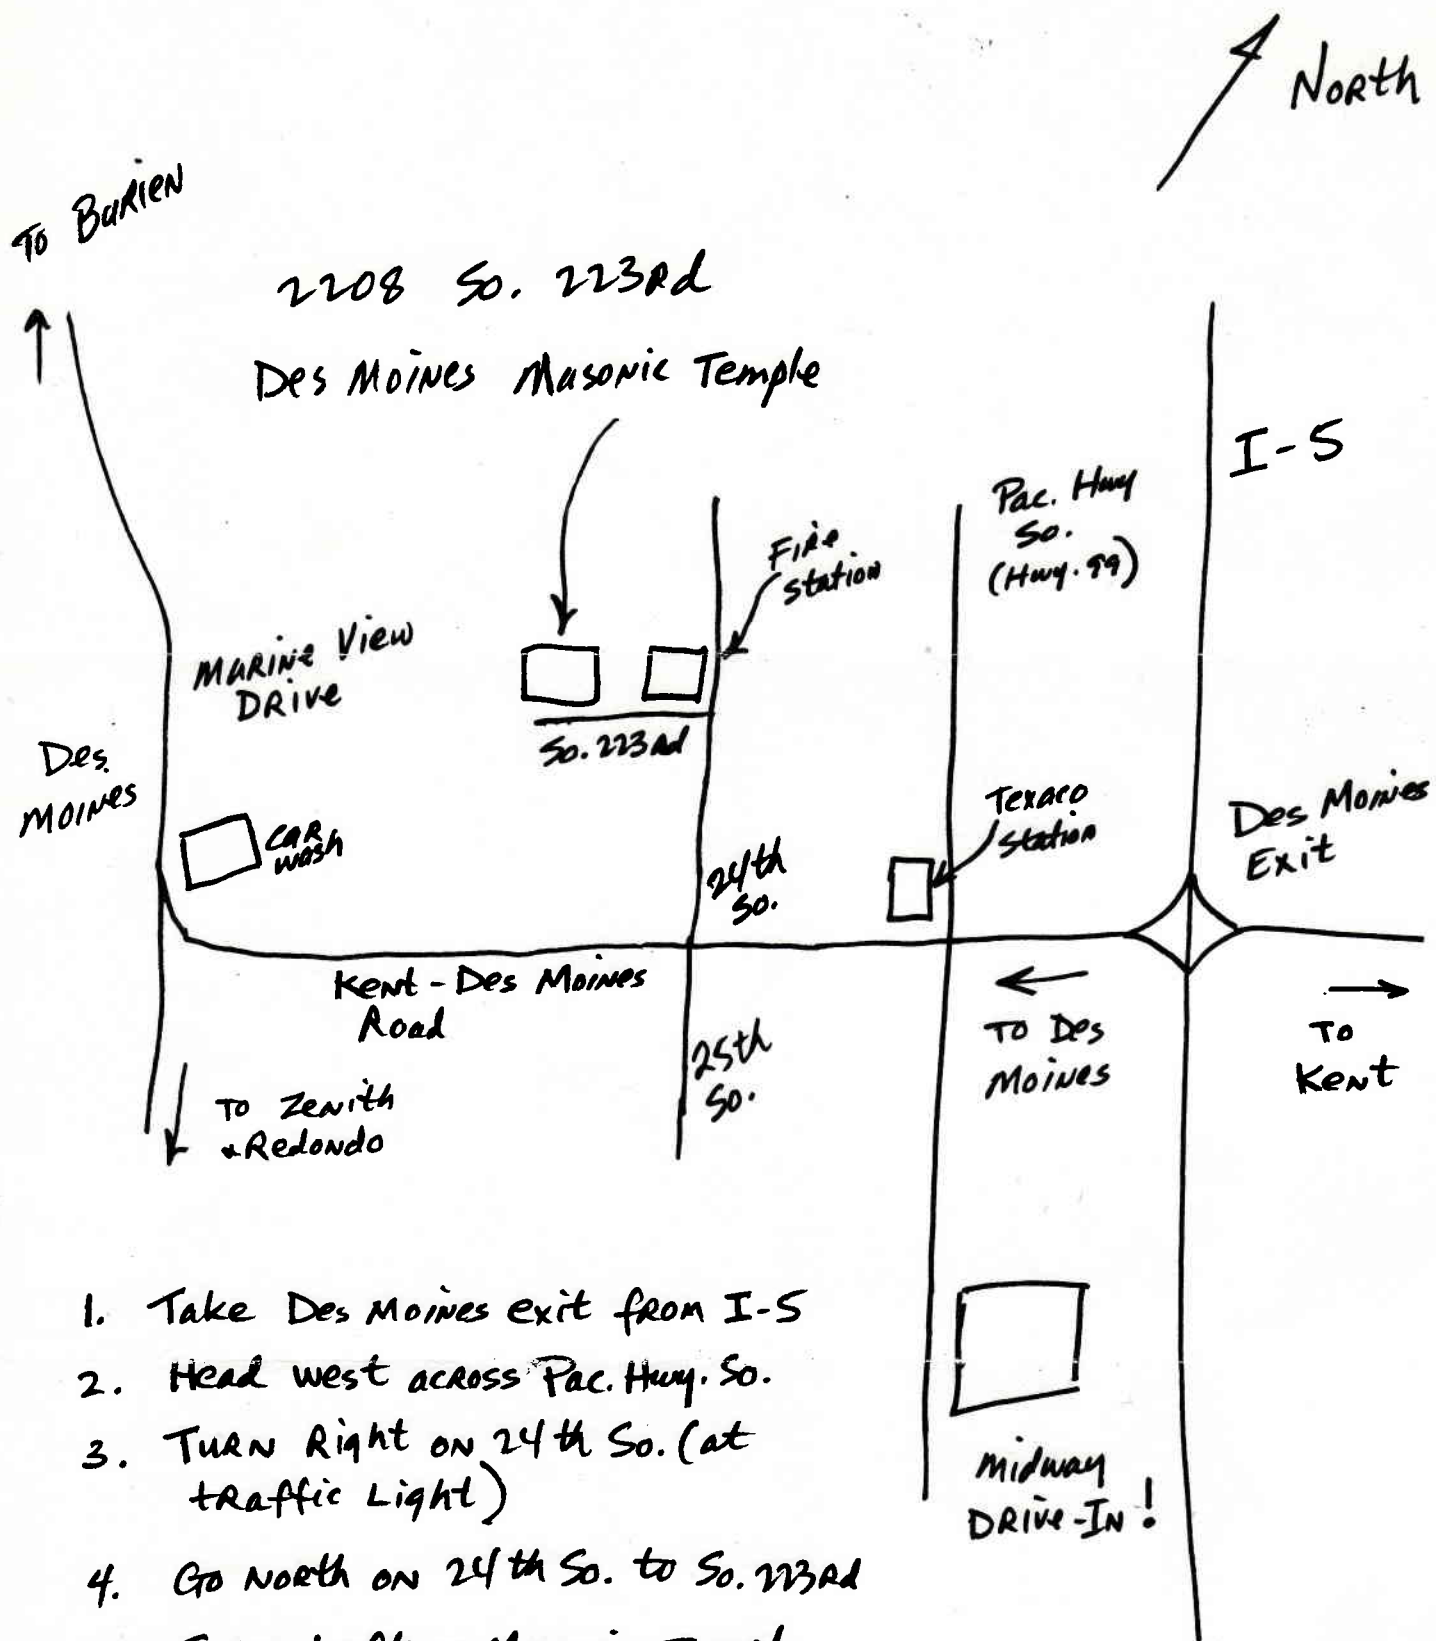 North
To Burien
2208 So. 223Rd
Des Moines Masonic Temple
I-5
Pac. Hwy
So.
(Hwy. 99)
Fire
Station
Marine View
Drive
So. 223Rd
Des
Moines
Car
Wash
Texaco
Station
Des Moines
Exit
24th
So.
Kent - Des Moines
Road
25th
So.
To Des
Moines
To
Kent
To Zenith
& Redondo
1. Take Des Moines exit from I-5
2. Head west across Pac. Hwy. So.
3. Turn Right on 24th So. (at
traffic Light)
4. Go North on 24th So. to So. 223Rd
Midway
Drive-In!